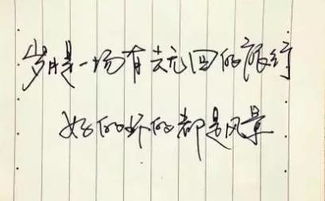 岁月是一场有去无回的旅行
好的坏的都是风景